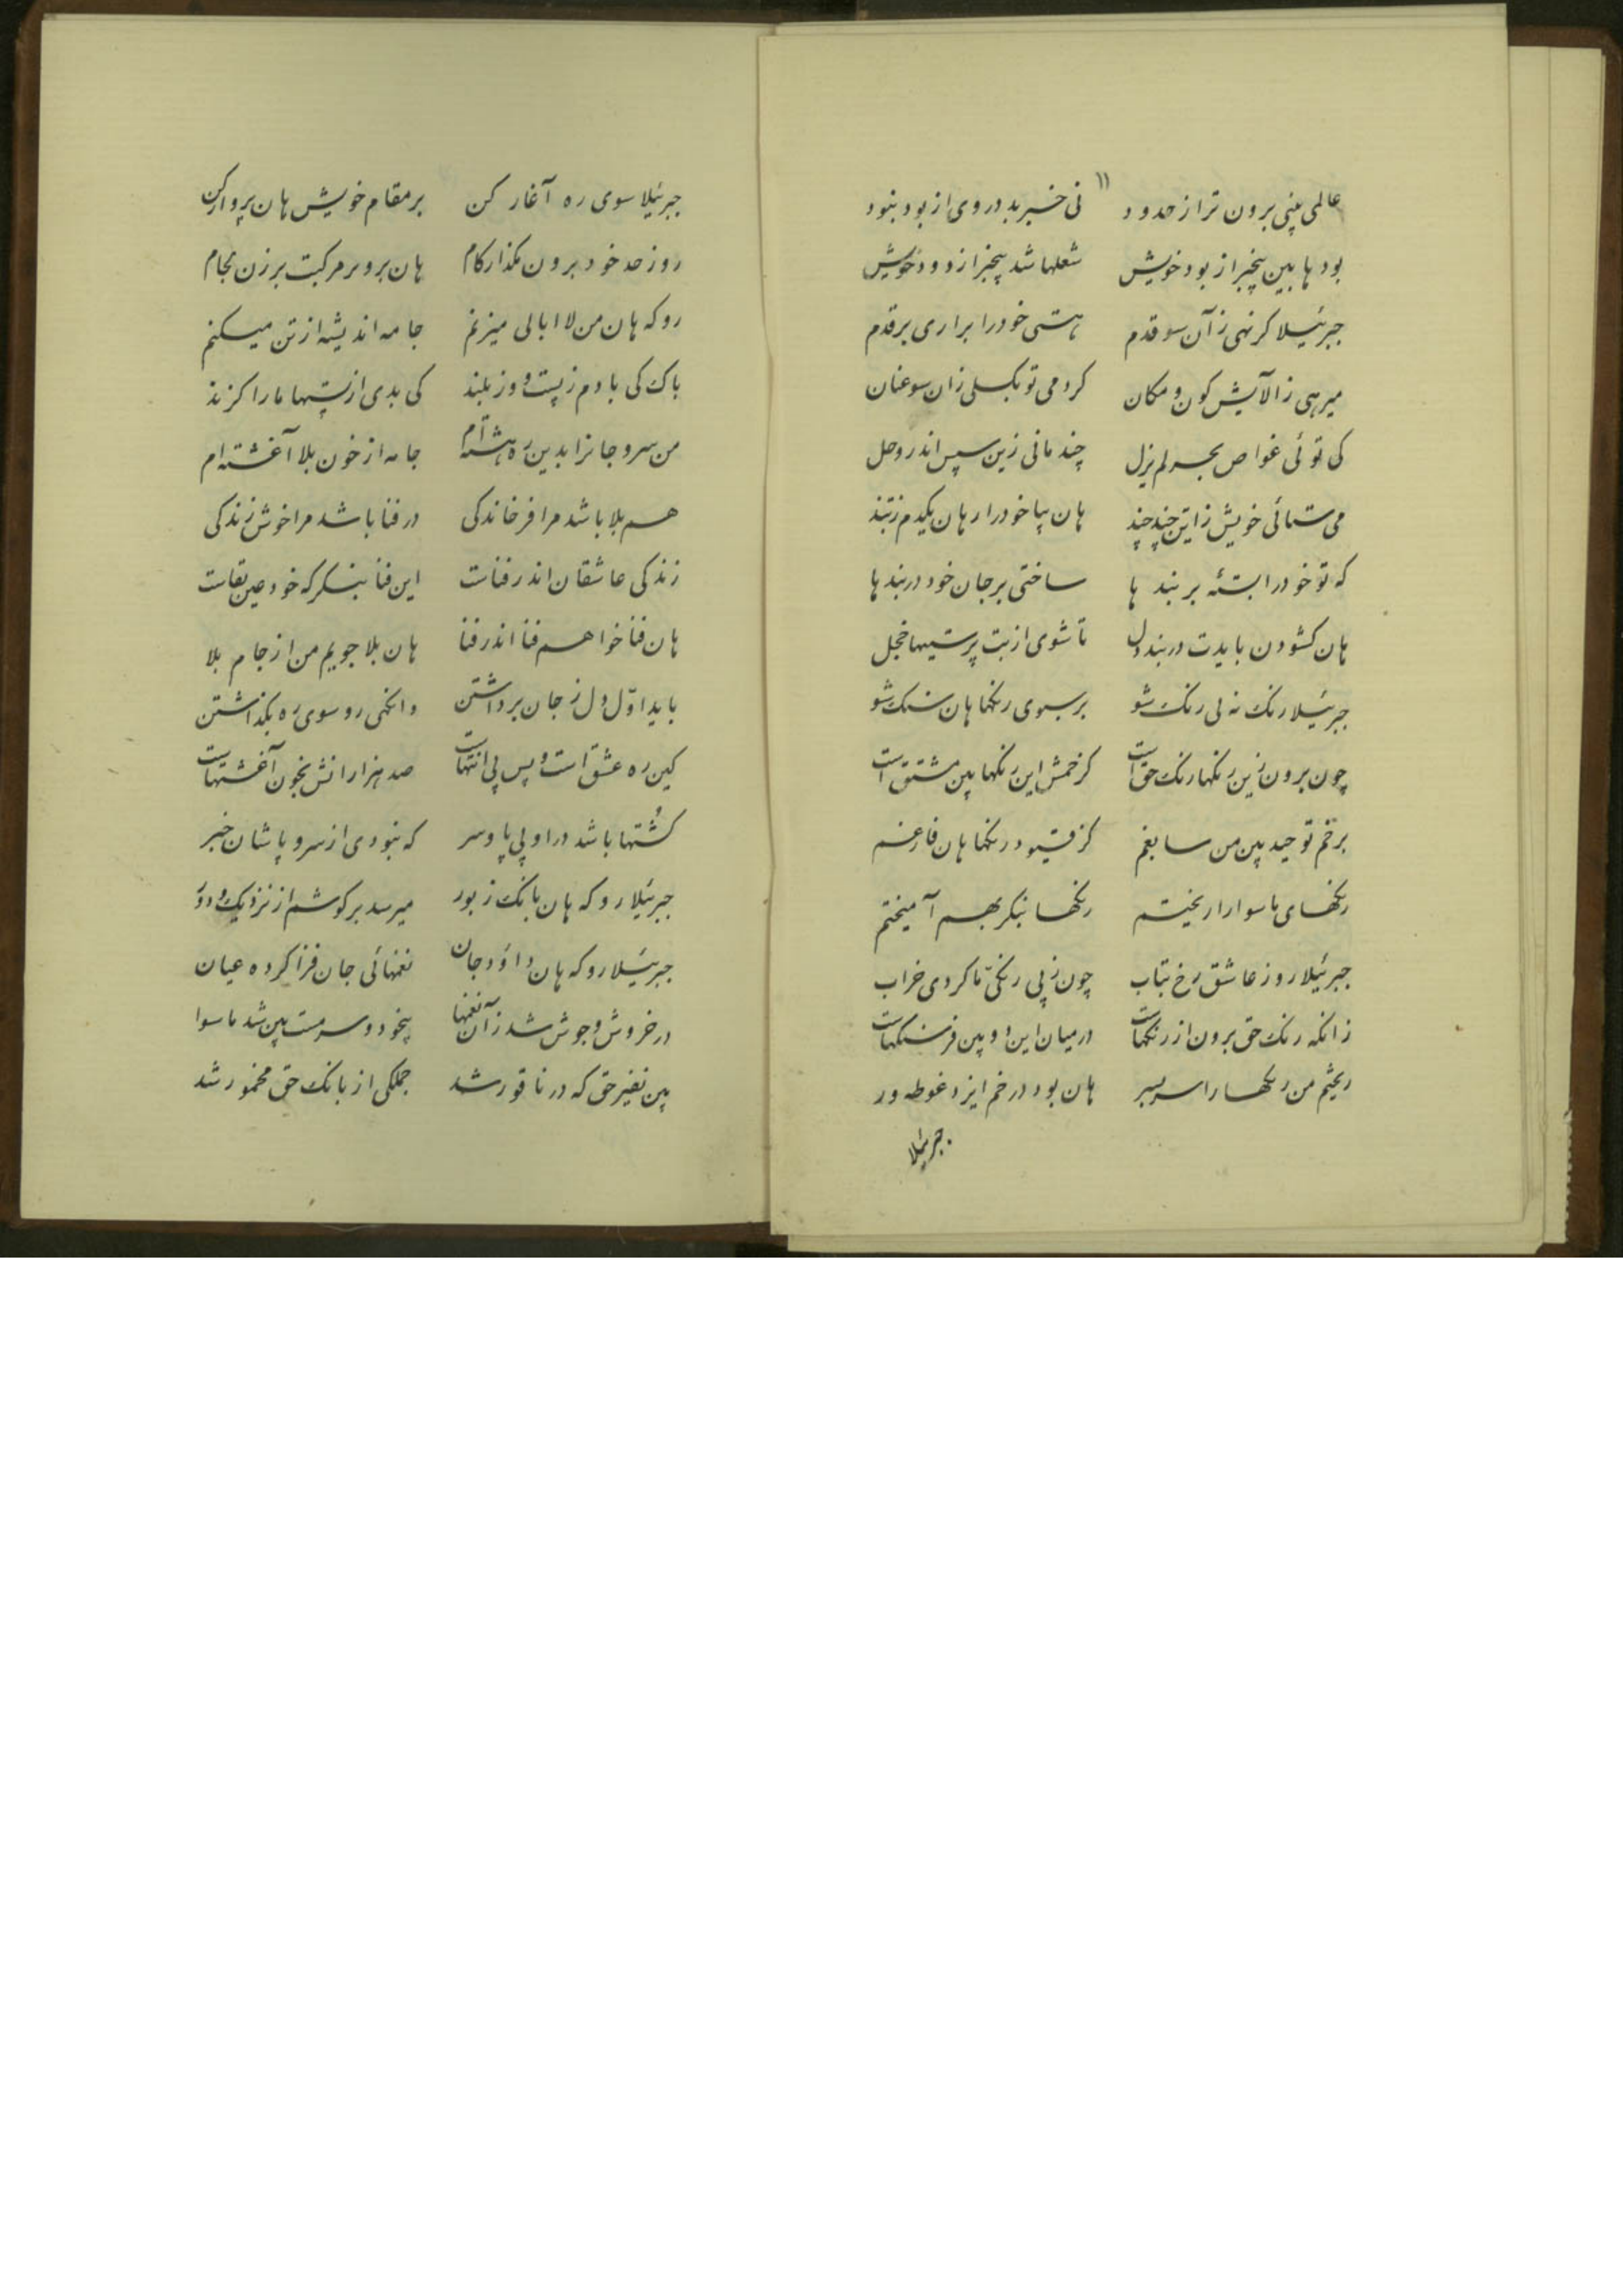 ۱۱
عالمی بینی برون تر از حدود نی خبر بد در وی از بود نبود
بودها بین بیخبر از بود خویش شعلها شد بیخبر از دود خویش
جبرئیلا کر نهی زآن سو قدم هستی خود را براری بر قدم
میرهی ز الآیش کون و مکان کر دمی تو بکسلی زان سو عنان
کی توئی غواص بحر لم یزل چند مانی زین سپس اندر وحل
می ستائی خویش زاین چند چند هان بیا خود را رهان یکدم زبند
که تو خود را بستهٔ بر بند ها ساختی بر جان خود دربند ها
هان کشودن بایدت دربند دل تا شوی از بت پرستیها خجل
جبرئیلا رنک نه بی رنک شو بر سبوی رنکها هان سنک شو
چون برون زین رنکها رنک حق است کز خمش این رنکها بین مشتق است
بر خم توحید بین من سابغم کز قیود رنکها هان فارغم
رنکهای ماسوا را ریختم رنکها بنکر بهم آمیختم
جبرئیلا رو ز عاشق رخ بتاب چون ز بی رنکی ما کردی خراب
زانکه رنک حق برون از رنکهاست درمیان این و بین فرسنکهاست
ریختم من رنکها را سربسر هان بود در خم ایزد غوطه ور
جبرئیلا
جبرئیلا سوی ره آغار کن بر مقام خویش هان پرواز کن
رو ز حد خود برون مکذار کام هان برو بر مرکبت بر زن لجام
رو که هان من لا ابالی میزنم جامه اندیشه از تن میکنم
باک کی با دم ز پست و وز بلند کی بدی از پستیها ما را کزند
من سر و جانرا بدین ره هشته‌ام جامه از خون بلا آغشته ام
هم بلا باشد مرا فرخاندکی در فنا باشد مرا خوش زندکی
زندکی عاشقان اندر فناست این فنا بنکر که خود عین بقاست
هان فنا خواهم فنا اندر فنا هان بلا جویم من از جام بلا
باید اوّل دل ز جان برداشتن وانکهی رو سوی ره بکذاشتن
کین ره عشق است و پس بی انتهاست صد هزارانش بخون آغشتهاست
کُشتها باشد در او بی پا و سر که نبودی از سر و پاشان خبر
جبرئیلا رو که هان بانک زبور میرسد بر کوشم از نزدیک و دور
جبرئیلا رو که هان داؤد جان نغمهائی جان فزا کرده عیان
در خروش و جوش شد زآن نغمها بیخود و سرمست بین شد ماسوا
بین نفیر حق که در ناقور شد جملکی از بانک حق مخمور شد